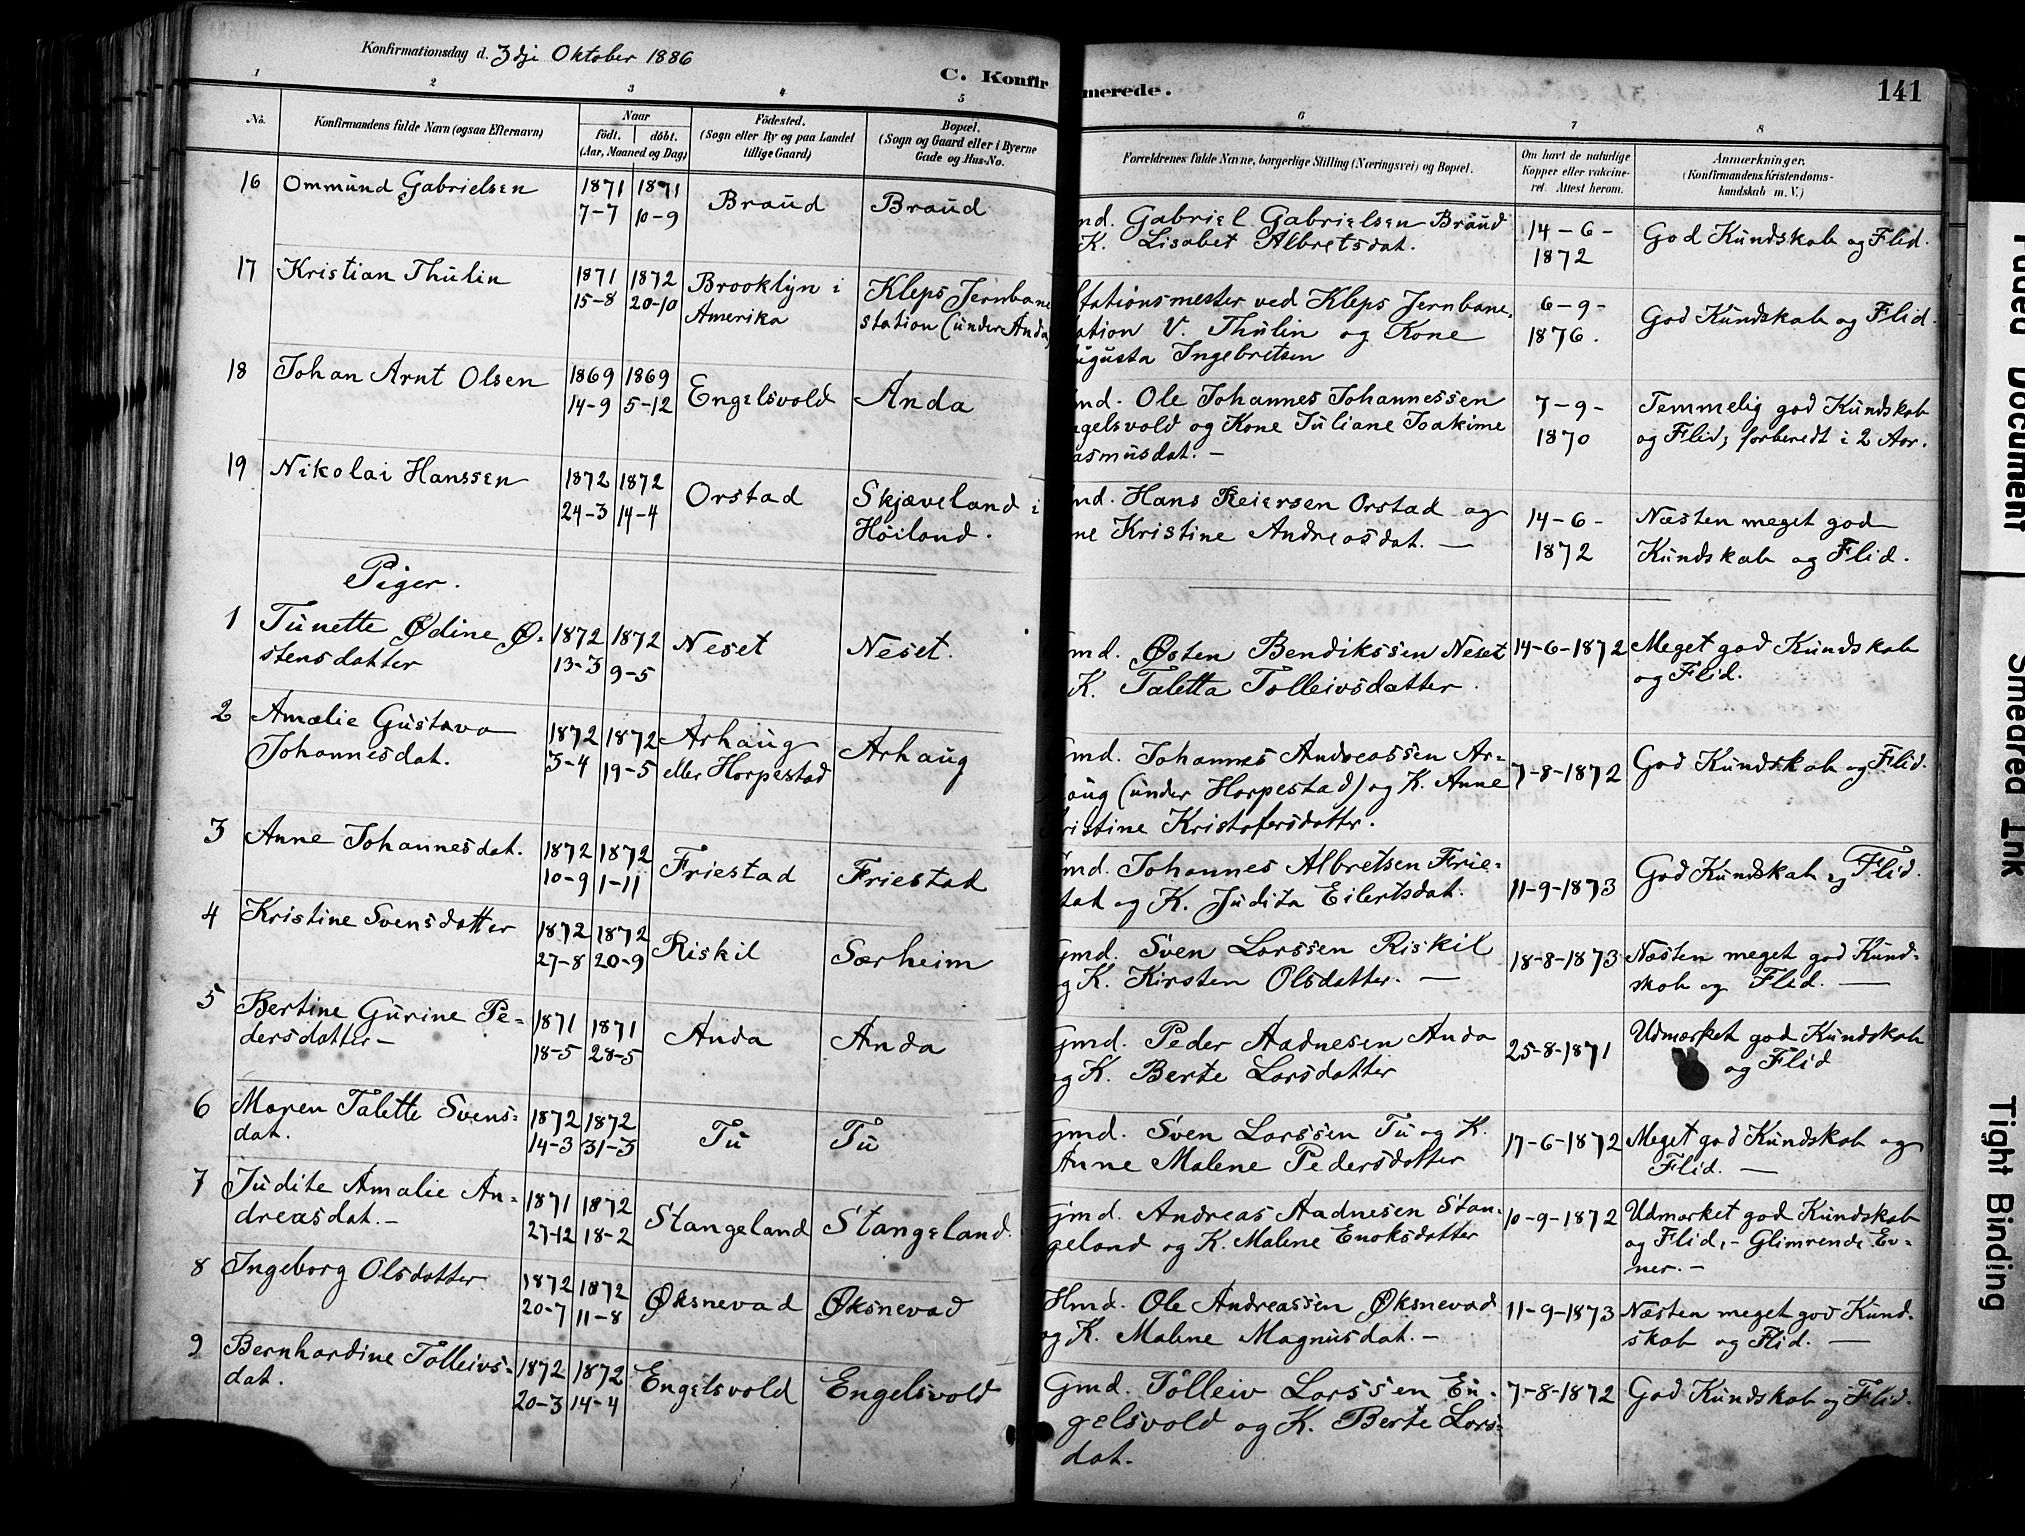 Konfirmationsdag d. 3dji Oktober 1886
C. Konfirmerede.
141
1 2 3 4 5 6 7 8
No. Konfirmandens fulde Navn (ogsaa Efternavn) Naar födt. döbt. (Aar, Maaned og Dag) Födested. (Sogn eller By og paa Landet tillige Gaard) Bopæl. (Sogn og Gaard eller i Byerne Gade og Hus-No. Forældrenes fulde Navne, borgerlige Stilling (Næringsvei) og Bopæl. Om havt de naturlige Kopper eller vakcineret. Attest herom. Anmærkninger. (Konfirmandens Kristendomskundskab m. V.)
16 Ommund Gabrielsen 1871 7-7 1871 10-9 Braud Braud
md. Gabriel Gabrielsen Braud
K. Lisabet Albretsdat.
14-6-1872 God Kundskab og Flid.
17 Kristian Thulin 1871 15-8 1872 20-10 Brooklyn i Amerika Kleps Jernbane station (under Anda)
Stationsmester ved Kleps Jernbane
ation V. Thulin og Kone
ugusta Ingebretsen
6-9-1876. God Kundskab og Flid.
18 Johan Arnt Olsen 1869 14-9 1869 5-12 Engelsvold Anda
md. Ole Johannes Johannessen
ngelsvold og Kone Juliane Joakime
asmusdat. -
7-9-1870 Temmelig god Kundskab
og Flid; forberedt i 2 Aar.
19 Nikolai Hanssen 1872 24-3 1872 14-4 Orstad Skjæveland i Höiland.
md. Hans Reiersen Orstad og
ne Kristine Andreasdat. —
14-6-1872 Næsten meget god
Kundskab og Flid.
Piger.
1 Tunette Ødine Ø-
stensdatter 1872 13-3 1872 9-5 Neset Neset.
md. Østen Bendikssen Neset
K. Taletta Tolleivsdatter.
14-6-1872 Meget god Kundskab
og Flid.
2 Amalie Gustava
Johannesdat. 1872 3-4 1872 19-5 Arhaug eller Horpestad Arhaug
md. Johannes Andreassen Ar-
aug (under Horpestad) og K. Anne
ristine Kristofersdatter.
7-8-1872 God Kundskab og Flid.
3 Anne Johannesdat. 1872 10-9 1872 1-11 Friestad Friestad
Gmd. Johannes Albretsen Frie-
stad og K. Judita Eilertsdat.
11-9-1873 God Kundskab og Flid.
4 Kristine Svensdatter 1872 27-8 1872 20-9 Riskil Særheim
Gmd. Sven Larssen Riskil
og K. Kirsten Olsdatter. —
18-8-1873 Næsten meget god Kund-
skab og Flid. —
5 Bertine Gurine Pe-
dersdatter- 1871 18-5 1871 28-5 Anda Anda
Gmd. Peder Aadnesen Anda
og K. Berte Larsdatter
25-8-1871 Udmærket god Kundskab
og Flid
6 Maren Talette Svens-
dat. 1872 14-3 1872 31-3 Tu Tu
Gmd. Sven Larssen Tu og K.
Anne Malene Pedersdatter
17-6-1872 Meget god Kundskab og
Flid. —
7 Judite Amalie An-
dreasdat.- 1871 27-12 1872 18-2 Stangeland Stangeland.
Gmd. Andreas Aadnesen Stan-
geland og K. Malene Enoksdatter
10-9-1872 Udmærket god Kundskab
og Flid, - Glimrende Ev-
ner. -
8 Ingeborg Olsdatter 1872 20-7 1872 11-8 Øksnevad Øksnevad
Hmd. Ole Andreassen Øksnevad
og K. Malene Magnusdat. -
11-9-1873 Næsten meget god Kund-
skab og Flid. —
9 Bernhardine Tolleivs-
dat. 1872 20-3 1872 14-4 Engelsvold Engelsvold
Gmd. Tolleiv Larssen En-
gelsvold og K. Berte Lars-
dat.
7-8-1872 God Kundskab og Flid.
Faded Document
Smeared Ink
Tight Binding